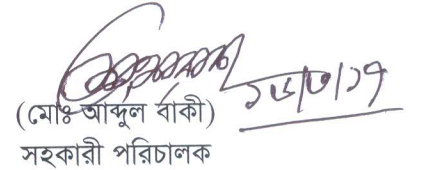 ১৬/৩/১৭
(মোঃ আব্দুল বাকী)
সহকারী পরিচালক